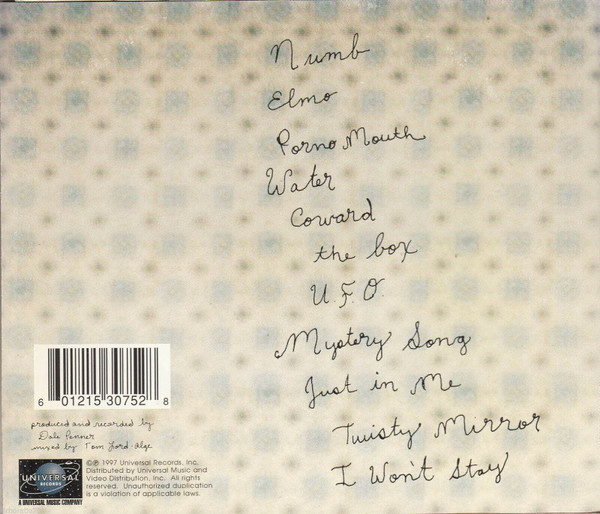 Numb
Elmo
Porno Mouth
Water
Coward
the box
U.F.O.
Mystery Song
Just in Me
Twisty Mirror
I Won't Stay
6 01215 30752 8
produced and recorded by
Dale Penner
mixed by Tom Lord-Alge
UNIVERSAL
RECORDS
A UNIVERSAL MUSIC COMPANY
©℗ 1997 Universal Records, Inc.
Distributed by Universal Music and
Video Distribution, Inc. All rights
reserved. Unauthorized duplication
is a violation of applicable laws.